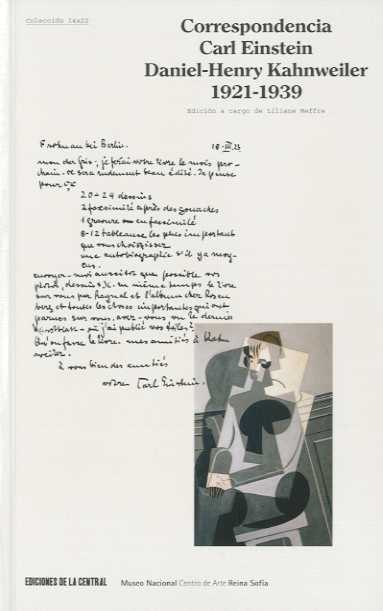 Colección 14x22
Correspondencia
Carl Einstein
Daniel-Henry Kahnweiler
1921-1939
Edición a cargo de Liliane Meffre
Frohnau bei Berlin. 18·III·23
mon cher Gris, je ferai votre livre le mois pro-
chain. ce sera rudement beau édité. Je pense
pour
20-24 dessins
2 facsimilé après des gouaches
1 gravure en facsimilé
8-12 tableaux les plus important
que vous choisissez
une autobiographie s'il y a moy-
en.
envoyez-moi aussitôt que possible vos
photos, dessins etc. en même temps le livre
sur vous par Raynal et l'album chez Rosen
berg et toutes les choses importantes qui ont
parues sur vous. avez-vous vu le dernier
où j'ai publié vos toiles?
faire le livre. mes amitiés à
à vous bien des amitiés
votre Carl Einstein.
EDICIONES DE LA CENTRAL Museo Nacional Centro de Arte Reina Sofía